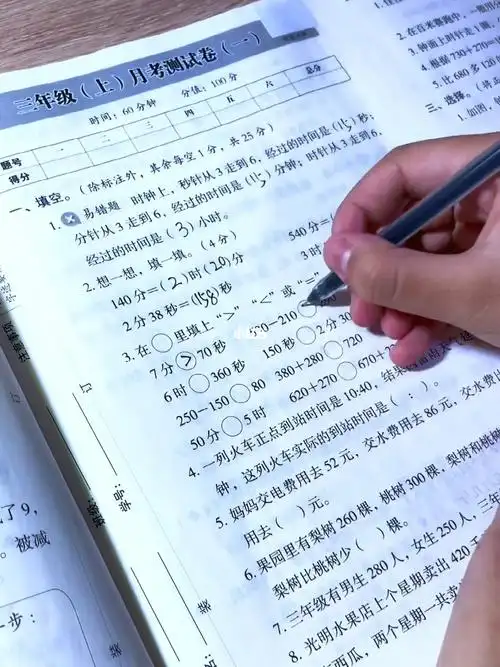 三年级（上）月考测试卷（一）
时间：60分钟 分值：100分
题号 一 二 三 四 五 六 总分
得分
一、填空。（除标注外，其余每空1分，共25分）
1. 易错题 时钟上，秒针从3走到6，经过的时间是（15）秒；
分针从3走到6，经过的时间是（15）分钟；时针从3走到6，
经过的时间是（3）小时。
2. 想一想，填一填。（4分）
140分＝（2）时（20）分 540分＝
2分38秒＝（158）秒 3时
3. 在○里填上“>”“<”或“=”
7分>70秒 -210○
6时○360秒 150秒○2分30
250-150○80 380+280○720
50分○5时 620+270○670+
4. 一列火车正点到站时间是10:40，结
钟，这列火车实际的到站时间是（ : ）。
5. 妈妈交电费用去52元，交水费用去86元，交水费
用去（ ）元。
6. 果园里有梨树260棵，桃树300棵，梨树和桃树
梨树比桃树少（ ）棵。
7. 三年级有男生280人，女生250人，三年
8. 光明水果店上个星期卖出420千
西瓜，两个星期一共卖
2. 在百米赛跑中，一般用
3. 钟面上时针走1圈，
4. 根据730+270=
5. 比680多120
三、选择。（
1. 如图，
了9，
。被减
一步：